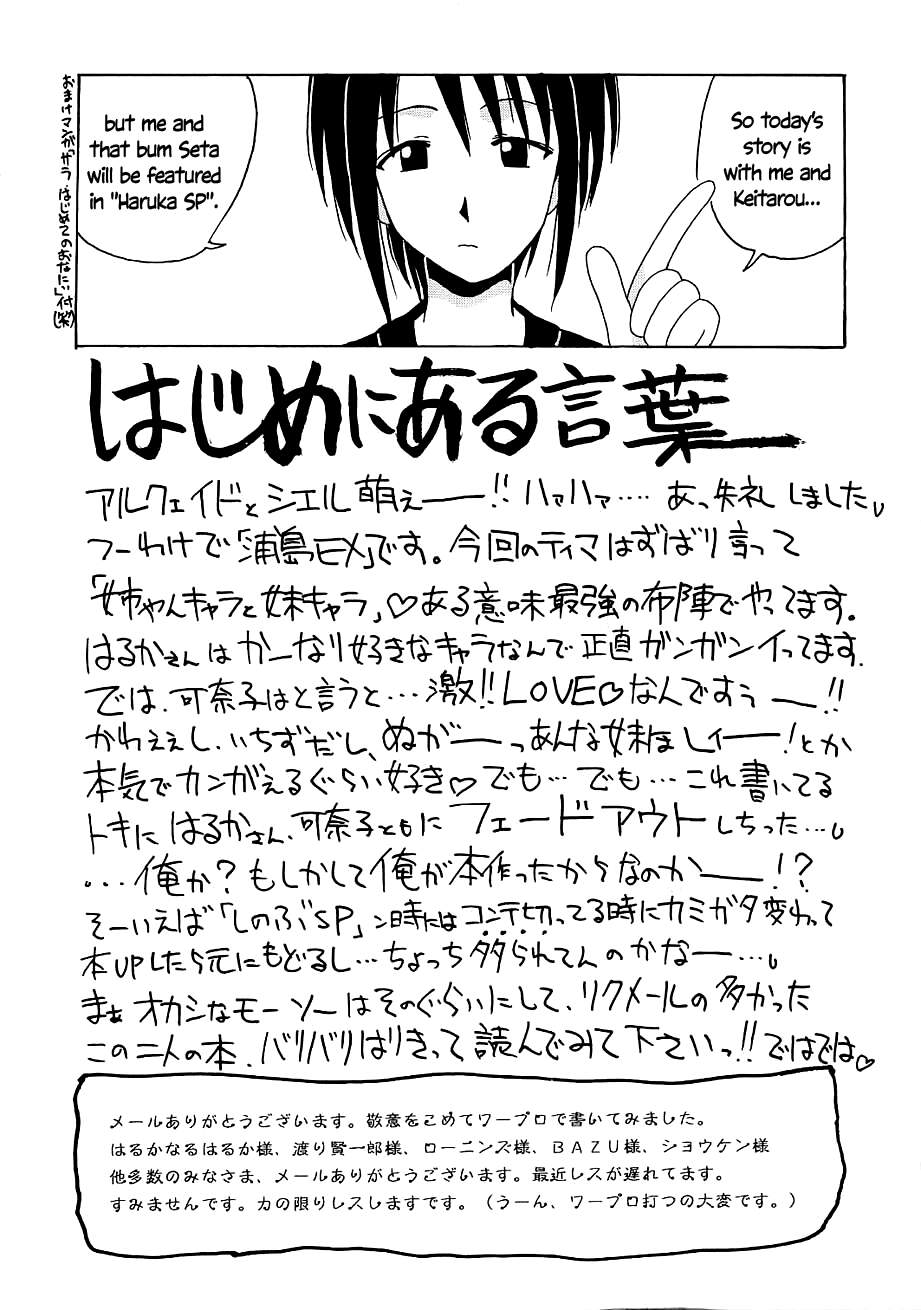 So today's
story is
with me and
Keitarou...
but me and
that bum Seta
will be featured
in "Haruka SP".
はじめにある言葉
アルクェイドとシエル萌えー!!ハァハァ…. あっ失礼しました
つーわけで「浦島EX」です。今回のテイマはずばり言って
「姉ちゃんキャラと妹キャラ」♡ある意味最強の布陣でやってます。
はるかさんはかーなり好きなキャラなんで正直ガンガンイってます.
では、可奈子はと言うと…激!!LOVE♡なんですぅー!!
かわええし、いちずだし、ぬがーっあんな妹ほしィー!とか
本気でカンがえるぐらい好き♡でも…でも…これ書いてる
トキにはるかさん、可奈子ともにフェードアウトしちった…
…俺か?もしかして俺が本作ったからなのかー!?
そーいえば「しのぶSP」ン時にはコンテ切ってる時にカミガタ変わって
本UPしたら元にもどるし…ちょっち
まぁオカシなモーソーはそのぐらいにして、リクメールの多かった
この二人の本、バリバリはりきって読んでみて下さいっ!!ではでは♡
メールありがとうございます。敬意をこめてワープロで書いてみました。
はるかなるはるか様、渡り賢一郎様、ローニンズ様、BAZU様、ショウケン様
他多数のみなさま、メールありがとうございます。最近レスが遅れてます。
すみませんです。力の限りレスしますです。（うーん、ワープロ打つの大変です。）